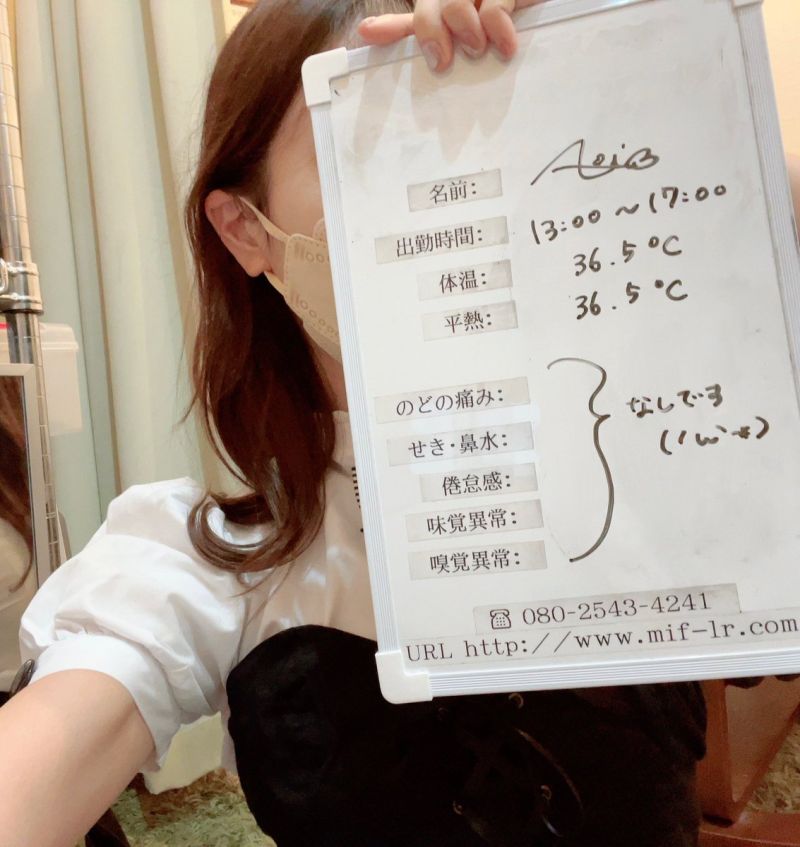 名前: Aoi
出勤時間: 13:00 ~ 17:00
体温: 36.5℃
平熱: 36.5℃
のどの痛み:
せき・鼻水:
倦怠感:
味覚異常:
嗅覚異常:
なしです
☎ 080-2543-4241
URL http://www.mif-lr.com